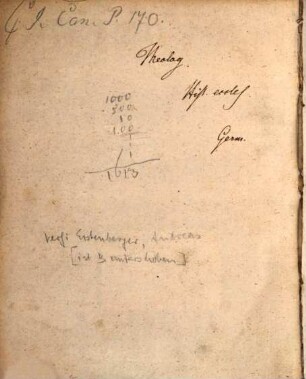 J. Can. P. 170.
Theolog.
Hist. eccles.
Germ.
1000
500
10
100
1
1
1613
Verf: Erstenberger, Andreas
[ist B unterschoben]